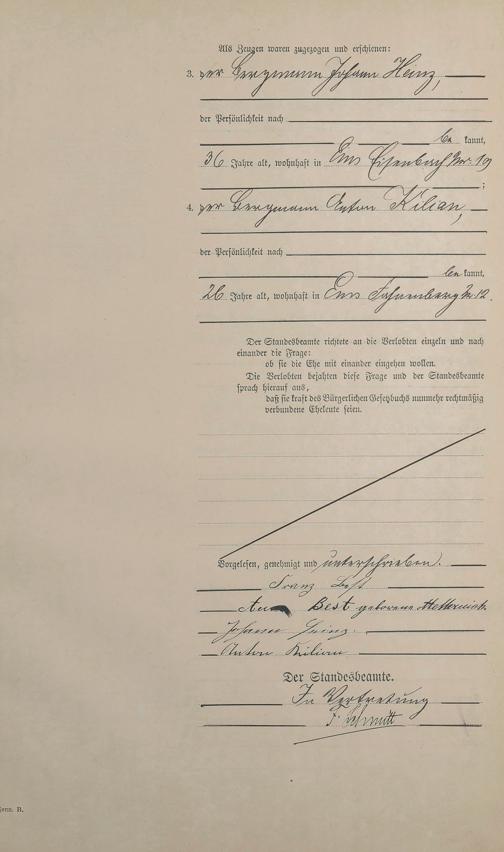 Als Zeugen waren zugezogen und erschienen:
3. der Bergmann Johann Heinz,
der Persönlichkeit nach
be kannt,
36 Jahre alt, wohnhaft in Ems Eisenbach Nr. 19
;
4. der Bergmann Anton Kilian,
der Persönlichkeit nach
be kannt,
26 Jahre alt, wohnhaft in Ems Fahnenberg Nr. 12.
Der Standesbeamte richtete an die Verlobten einzeln und nach
einander die Frage:
ob sie die Ehe mit einander eingehen wollen.
Die Verlobten bejahten diese Frage und der Standesbeamte
sprach hierauf aus,
daß sie kraft des Bürgerlichen Gesetzbuchs nunmehr rechtmäßig
verbundene Eheleute seien.
Vorgelesen, genehmigt und unterschrieben.
Franz Best
Best geborene
Johann Heinz.
Anton Kilian
Der Standesbeamte.
In Vertretung
Schmitt
B.